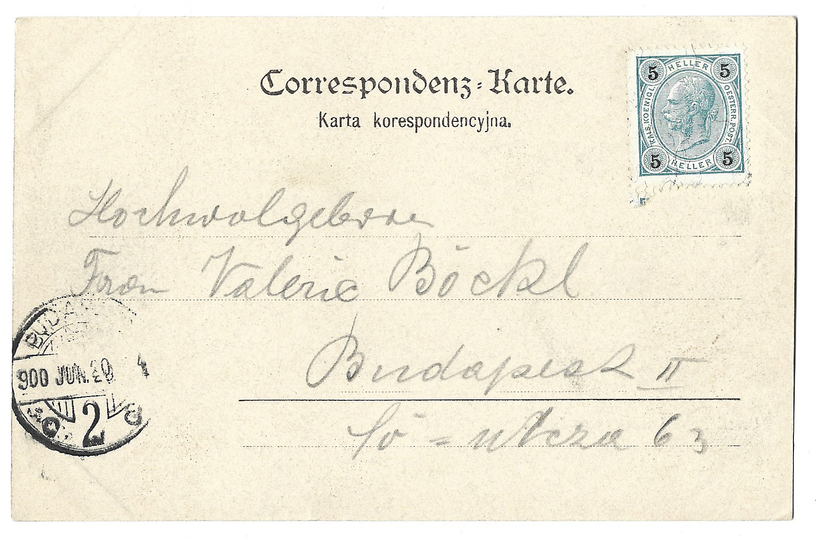 Correspondenz-Karte.
Karta korespondencyjna.
5 HELLER 5
KAIS. KOENIGL. OESTERR. POST.
5 HELLER 5
Hochwolgeborne
Frau Valerie Böckl
Budapest II
fő = utcza 63
BUDAP
900 JUN. 20 4
2